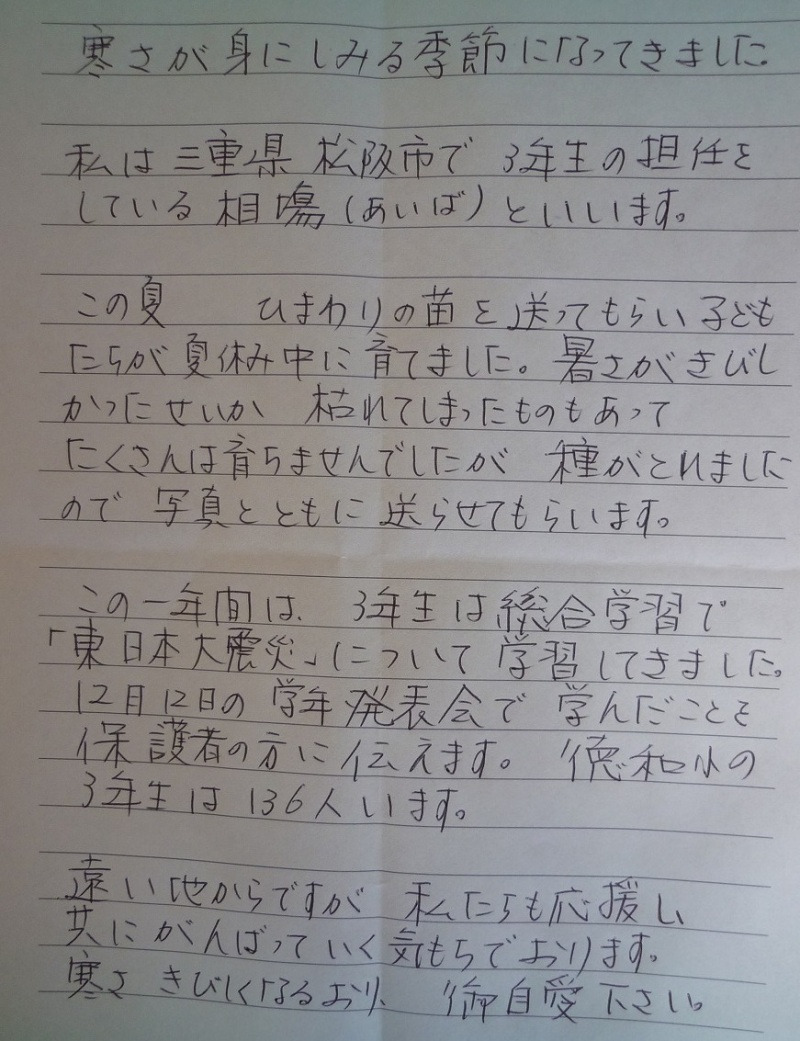 寒さが身にしみる季節になってきました。
私は三重県 松阪市で 3年生の担任を
している 相場(あいば)といいます。
この夏 ひまわりの苗を送ってもらい子ども
たちが夏休み中に育てました。暑さがきびし
かったせいか 枯れてしまったものもあって
たくさんは育ちませんでしたが 種がとれました
ので 写真とともに 送らせてもらいます。
この一年間は、3年生は総合学習で
「東日本大震災」について 学習してきました。
12月12日の 学年発表会で 学んだことを
保護者の方に伝えます。 徳和小の
3年生は 136人います。
遠い地からですが 私たちも応援し、
共にがんばっていく気もちでおります。
寒さ きびしくなるおり、 御自愛下さい。